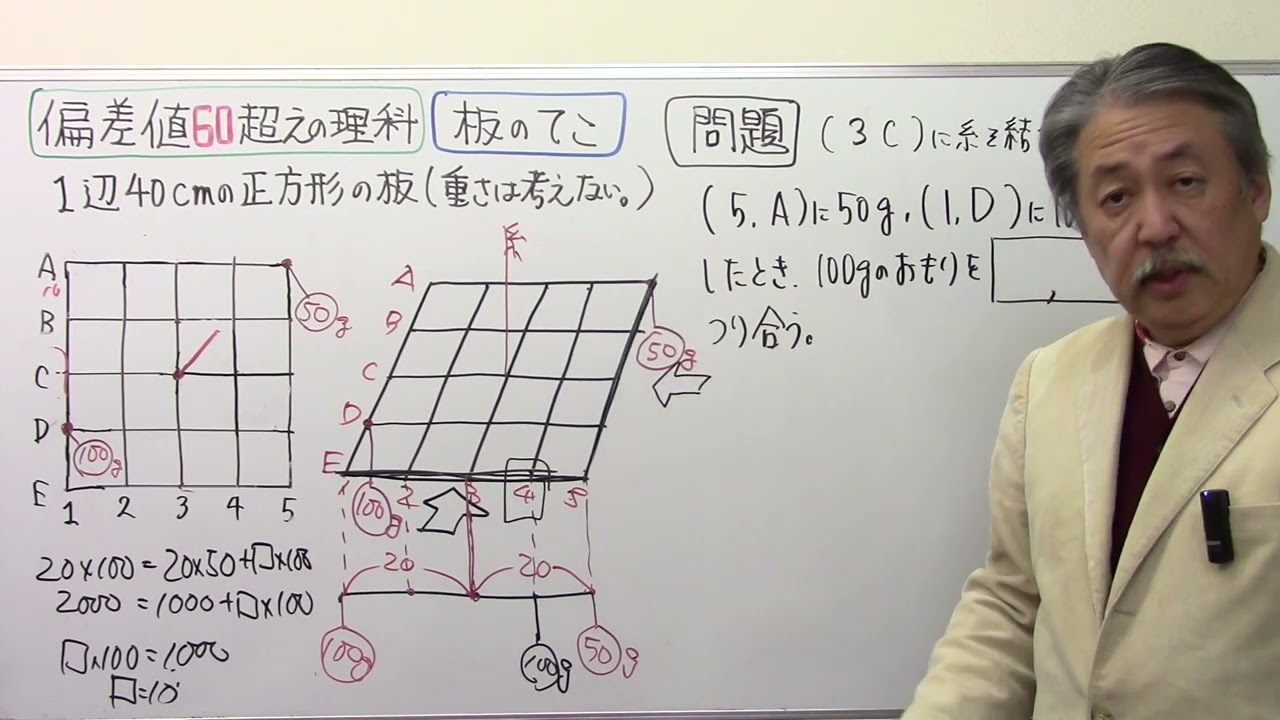 偏差値60超えの理科
板のてこ
問題
(3 C)に糸を結
1辺40cmの正方形の板(重さは考えない。)
(5.A)に50g,(1,D)に
したとき、100gのおもりを
つり合う。
A
B
C
D
E
1 2 3 4 5
50g
100g
糸
A
B
C
D
E
2 3 4 5
50g
100g
20 20
100g 100g 50g
20×100=20×50+□×100
2000=1000+□×100
□×100=1000
□=10